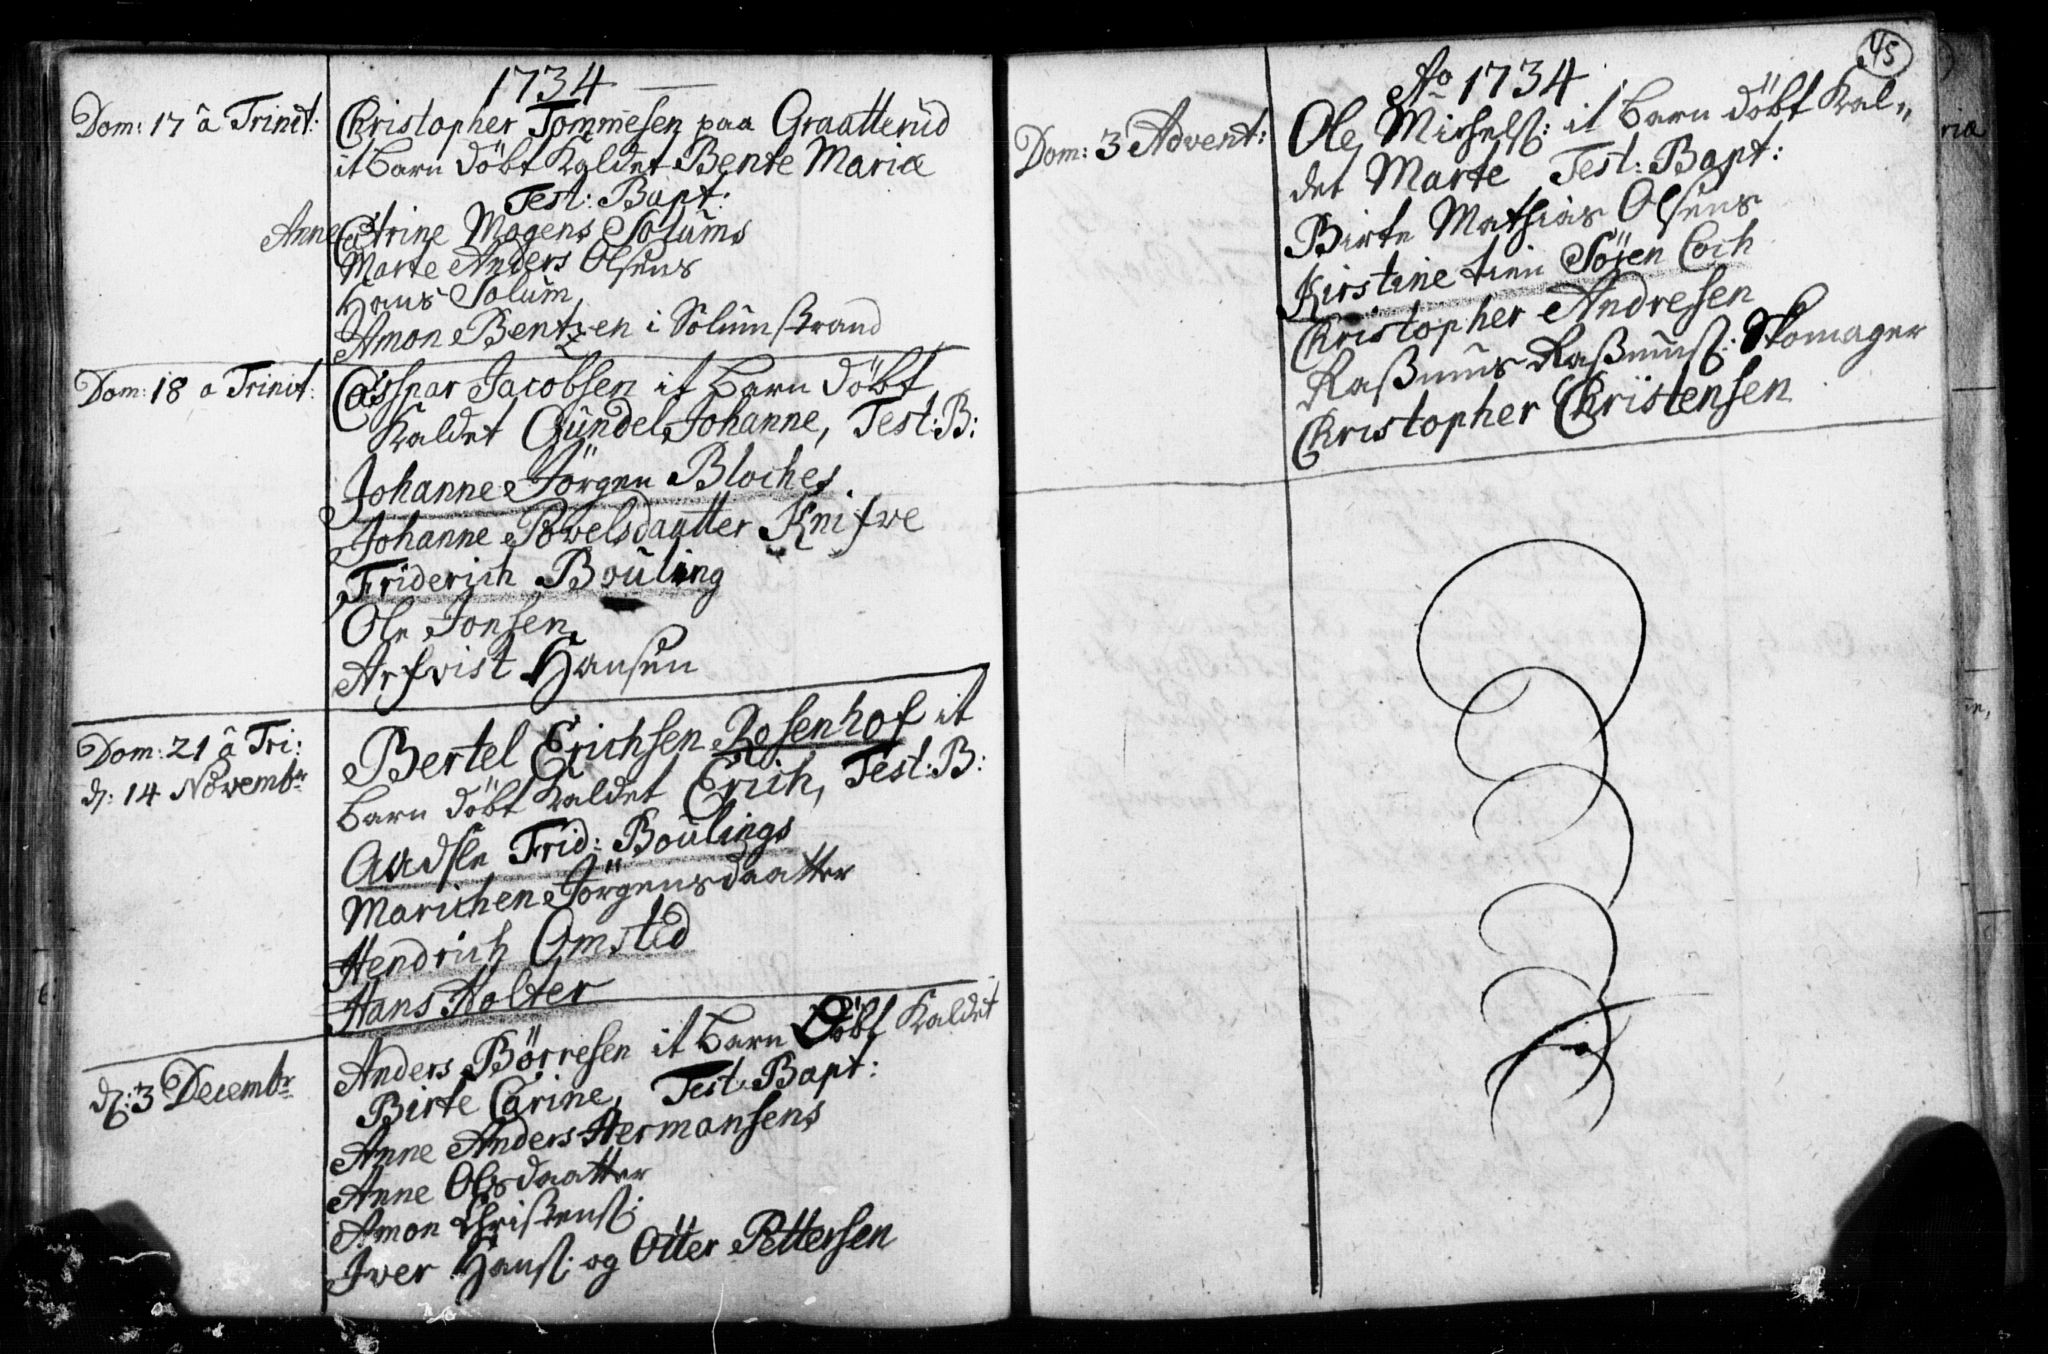 1734
Dom: 17 â Trinit:
Christopher Tommesen paa Graatterud
it barn döbt kaldet Bente Mariæ
Test: Bapt:
Anne Catrine Mogens Solums
Marte Anders Olsens
Hans Solum
Amon Bentzen i Solumstrand
Dom: 18 a Trinit:
Casspar Jacobsen it barn döbt
kaldet Gundel Johanne, Test: B:
Johanne Jörgen Bloches
Johanne Povelsdaatter Knifve
Friderich Bouling
Ole Jonsen
Arfvist Hansen
Dom: 21 â Tri:
d: 14 Novembr
Bertel Erichsen Rosenhof it
barn döbt kaldet Erich, Test: B:
Frid: Boulings
Marichen Jörgensdaatter
Hendrich Omsted
Hans Holter
d: 3 Decembr
Anders Börresen it barn Döbt kaldet
Birte Carine, Test: Bapt:
Anne Anders Hermansens
Anne Olsdaatter
Amon Christens:
Iver Hans: og Otter Pettersen
45
Ao 1734
Dom: 3 Advent:
Ole Michels: it barn döbt kal„
det Marte Test: Bapt:
Birte Mathias Olsens
Kirstine Söfren Coch
Christopher Andresen
Raßmus Raßmus: Skomager
Christopher Christensen